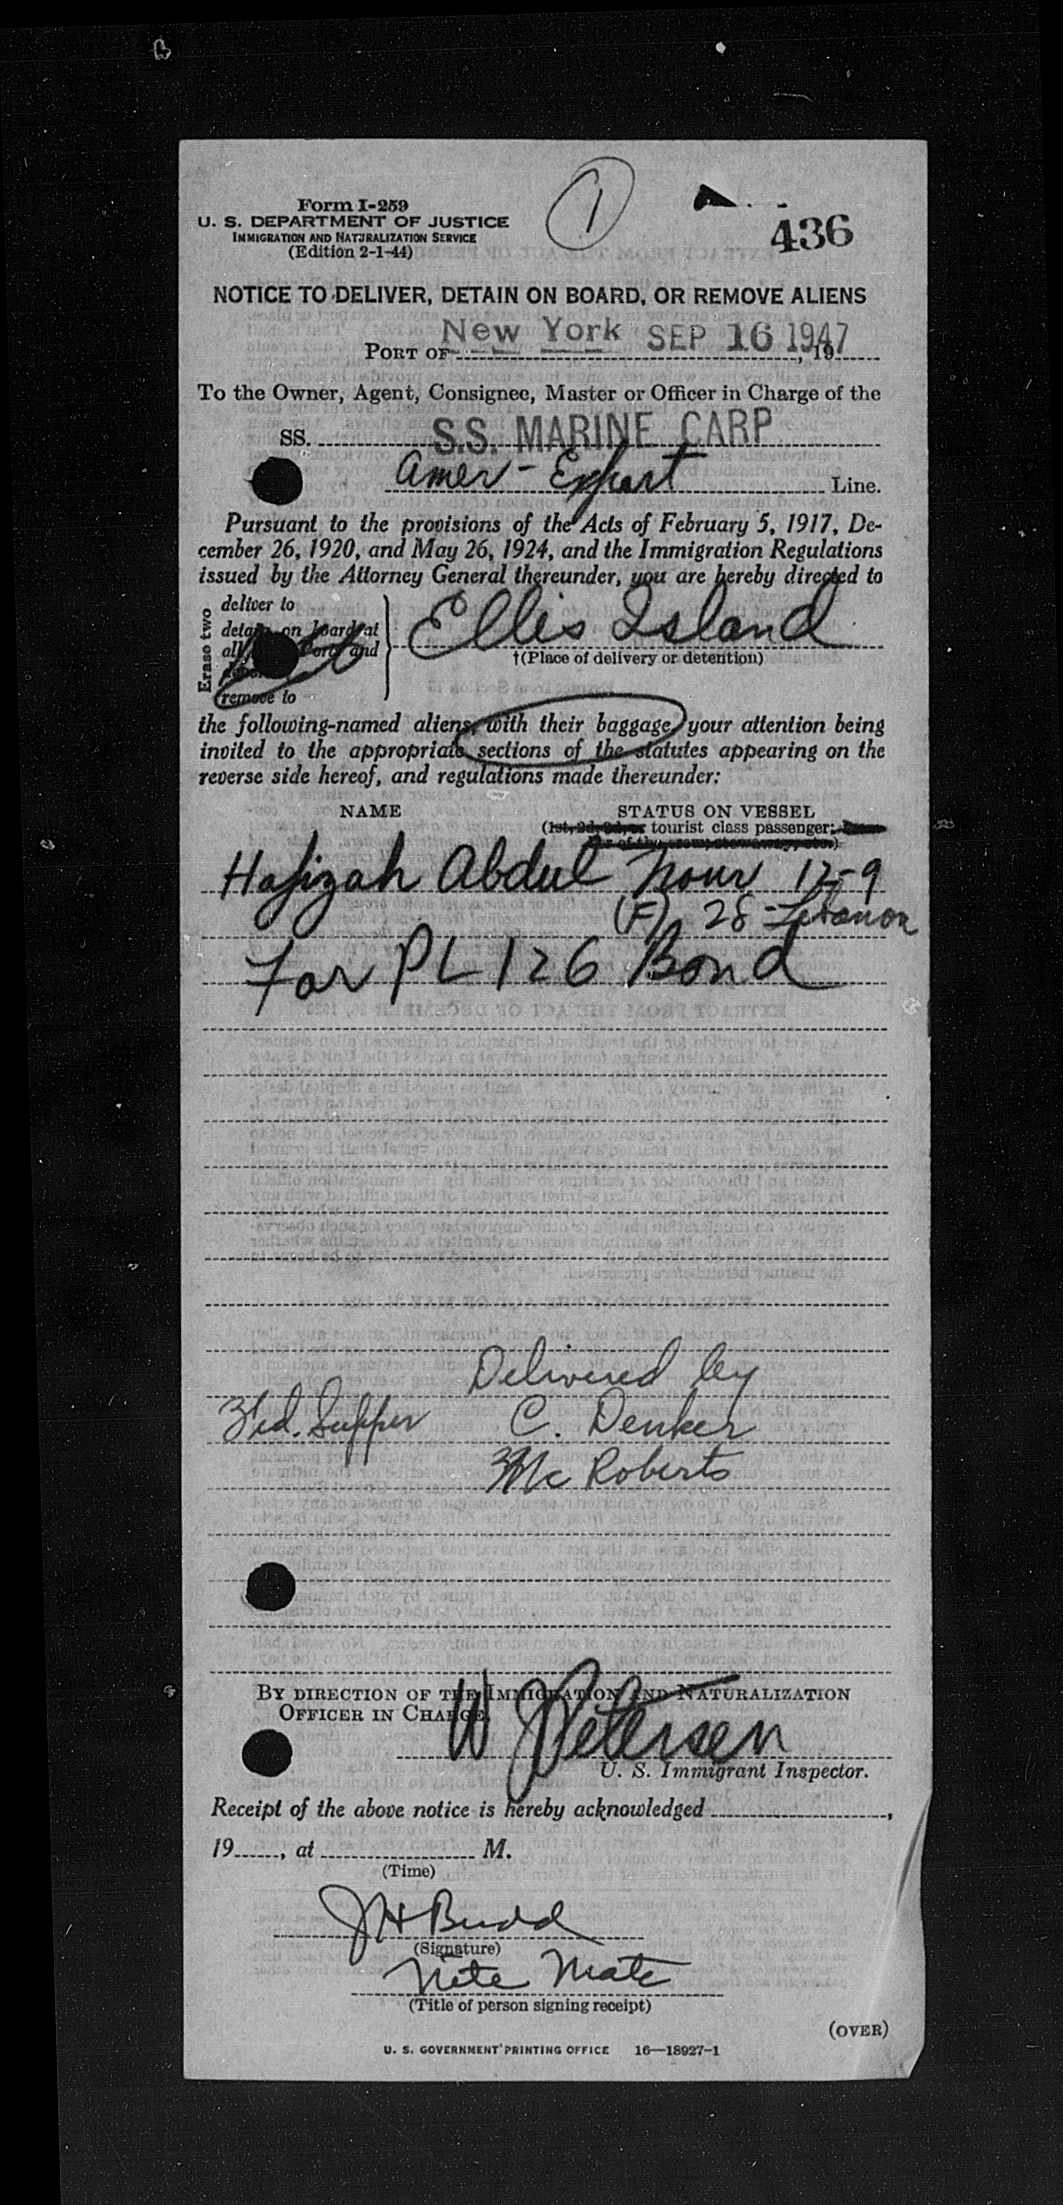 1
436
Form I-259
U. S. DEPARTMENT OF JUSTICE
IMMIGRATION AND NATURALIZATION SERVICE
(Edition 2-1-44)
NOTICE TO DELIVER, DETAIN ON BOARD, OR REMOVE ALIENS
PORT OF New York SEP 16 1947, 19
To the Owner, Agent, Consignee, Master or Officer in Charge of the
SS. S.S. MARINE CARP
Amer-Export Line.
Pursuant to the provisions of the Acts of February 5, 1917, De-
cember 26, 1920, and May 26, 1924, and the Immigration Regulations
issued by the Attorney General thereunder, you are hereby directed to
Erase two
deliver to
detain on board at
all Ports and
remove to
Ellis Island
†(Place of delivery or detention)
the following-named aliens, with their baggage, your attention being
invited to the appropriate sections of the statutes appearing on the
reverse side hereof, and regulations made thereunder:
NAME STATUS ON VESSEL
(1st, 2d, 3d, or tourist class passenger;
Hafizah Abdul Nour 12-9
(F) 28-Lebanon
For PL 126 Bond
Delivered by
Supper C. Denker
McRoberts
BY DIRECTION OF THE IMMIGRATION AND NATURALIZATION
OFFICER IN CHARGE,
W J Petersen
U. S. Immigrant Inspector.
Receipt of the above notice is hereby acknowledged ,
19 , at M.
(Time)
J H Budd
(Signature)
Nite Mate
(Title of person signing receipt)
(OVER)
U. S. GOVERNMENT PRINTING OFFICE 16—18927-1